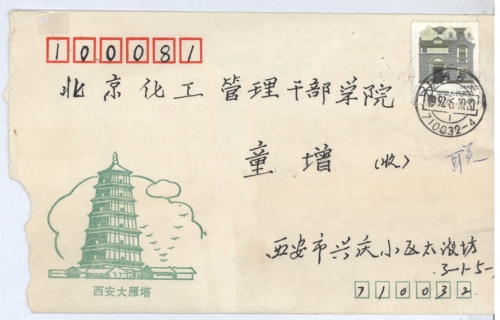 100081
北京化工管理干部学院
童增(收)
710032-4
西安市兴庆小区太液坊
3-1-5-
西安大雁塔
710032